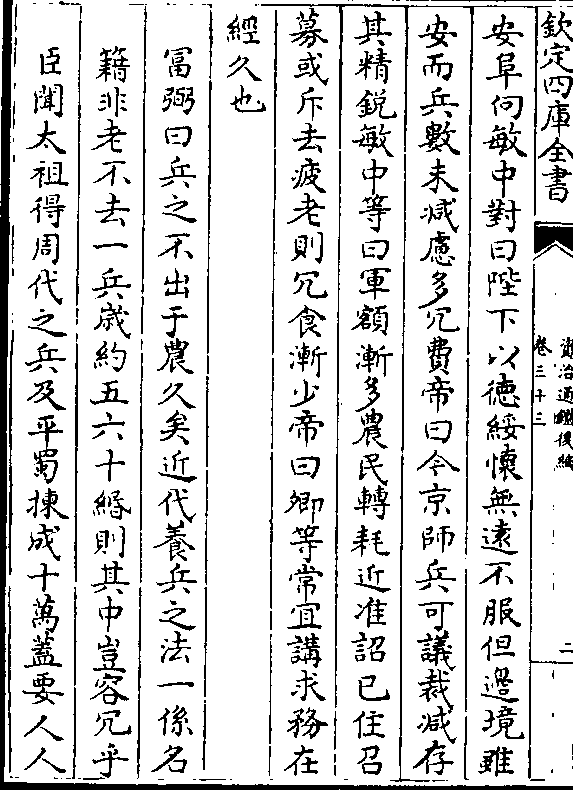 欽定四庫全書
資治通鑑後編
卷三十三
二
安阜向敏中對曰陛下以德綏懷無遠不服但邊境雖
安而兵數未減慮多冗費帝曰今京師兵可議裁減存
其精銳敏中等曰軍額漸多農民轉耗近准詔已住召
募或斥去疲老則冗食漸少帝曰卿等常宜講求務在
經久也
富弼曰兵之不出于農久矣近代養兵之法一係名
籍非老不去一兵歲約五六十緡則其中豈容冗乎
臣聞太祖得周代之兵及平蜀揀成十萬蓋要人人